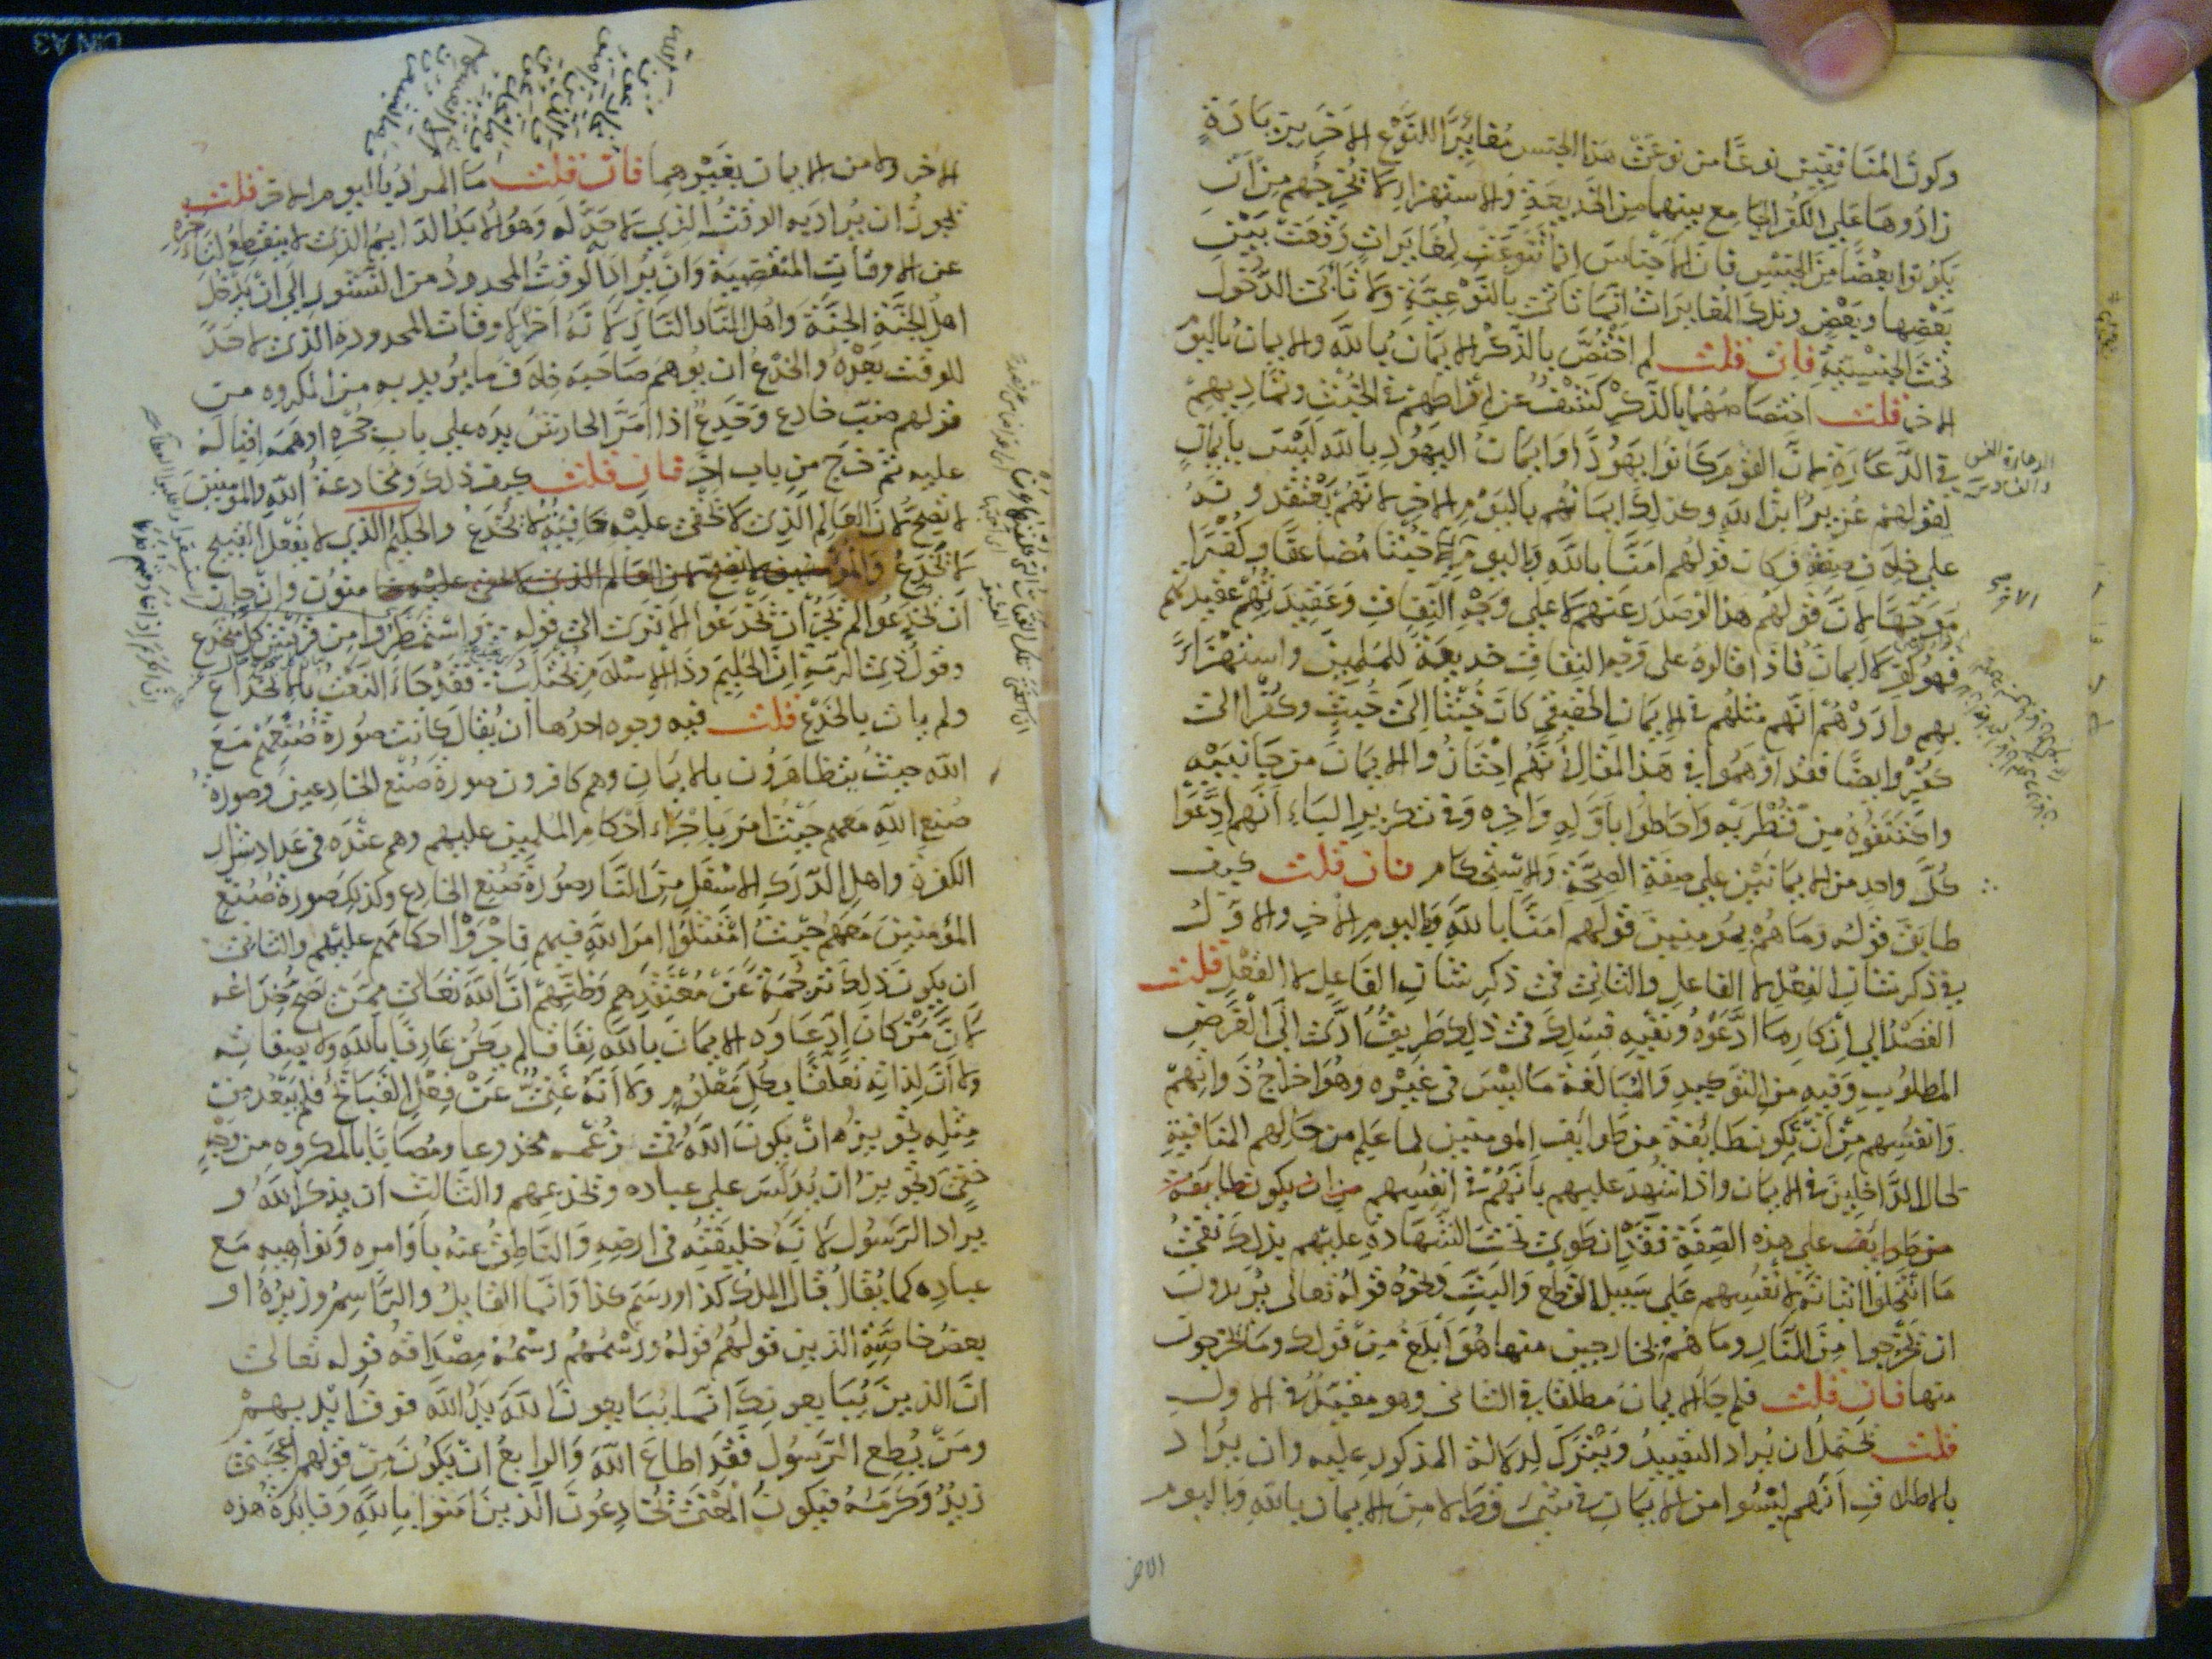 وكونُ المنافقين نوعًا من نوعَيْ هذا الجنس مُغايِرًا للنَّوْع الاخر بزيادةٍ
زادُوها علي الكفر الجامع بينهما من الخديعة والاستهزاءِ لا تُخرِجُهم مِن اَن
يكونوا بعضًا من الجنس فان الاجناس انما تنوَّعت لمغايراتٍ وقعت بين
بعضها وبعضٍ وتلك المُغايراتُ انما تاتي بالنَّوْعيَّة ولا تأبى الدُّخول
تحتَ الجنسيّة فان قلت لم اختُصَّ بالذكر الايمانُ بالله والايمان باليوم
الاخر قلت اختصاصُهُما بالذّكر كَشْفٌ عن افراطهم في الخُبث وتماديهم
في الدَّعارة لانّ القوم كانوا يهودًا وايمانُ اليهود بالله ليسَ بايمانٍ
لقولهم عُزيرٌ ابن الله وكذلك ايمانهم باليوم الاخر لانهم يعتقدونهُ
علي خلاف صفته فكان قولهم امنّا بالله وباليوم الاخر خبثًا مُضاعفًا وكُفرًا
مُوَجَّهًا لانّ قولهم هذا لو صدر عنهم لا علي وجْهِ النفاق وعقيدتُهم عقيدتهم
فهو كفر لا ايمان فاذا قالوهُ على وجْه النفاق خديعةً للمسلمين واستهزاءً
بهم وأرَوْهُمْ انّهم مثلهم في الايمان الحقيقي كان خُبثًا الى خُبثٍ وكُفرًا الى
كفرٍ وايضًا فقد اوهموا في هذا المقال انّهُم اختازوا الايمانَ من جانبيْه
واكتنفوهُ مِن قُطْرَيْه واحاطوا باوّله واخره وفي تكرير الباءِ انّهم ادَّعَوْا
كُلَّ واحدٍ من الايمانَيْن علي صفة الصِّحّة والاستحكام فان قلت كيف
طابَقَ قولُه وما هم بمؤمنين قولَهم امنّا بالله وباليوم الاخر والاوّلُ
في ذكر شأن الفعل لا الفاعل والثاني في ذكر شأن الفاعل لا الفعل قلت
القصدُ الي انكار ما ادَّعَوْهُ ونفيه فسُلِك في ذلك طريقٌ ادَّى الى الغرض
المطلوب وفيه من التوكيد والمبالغة ما ليس في غيره وهو اخراجُ ذواتِهم
وانفسهم من انْ تكون طائفةً من طوايف المومنين لما علم من حالهم المنافية
لحال الداخلين في الايمان واذا شُهِدَ عليهم بانّهُم في انفسهم من ان يكون طايفة
من طوايف علي هذه الصّفة فقد انطوى تحت الشَّهادة عليهم بذلك نفيُ
ما انتحلوا اثباته لانفسهم علي سبيل القطع والبتّ ونحوُه قوله تعالى يُريدون
ان يخرجوا مِن النّار وما هُم بخارجين منها هُوَ ابلغ من قولك وما يخرجون
منها فان قلت فلم جا الايمان مطلقا في الثاني وهو مقيّدٌ في الاول
قلت يحتمل ان يُراد التقييدُ ويُتْرَكَ لدلالة المذكور عليه وان يُراد
بالاطلاق انّهم ليسُوا من الايمان في شيء قط لا من الايمان بالله وباليوم
الاخر
الدعارة الفس
الاخر
الاخر ولا من الايمان بغَيْرهِما فان قلت ما المراد باليوم الاخر قلت
يجوزُ ان يُراد به الوقتُ الذي لا حدّ له وهُوَ الابدُ الدايمُ الذي لا ينقطعُ لتاخّره
عن الاوقات المنقضيةِ وان يُراد الوقتُ المحدودُ من النُّشور الي ان يدخُل
اهلُ الجنَّة الجنَّة واهلُ النّار النّارَ لانّهُ اخرُ الاوقات المحدودة الذي لا حَدَّ
للوقت بعْدهُ والخدْعُ ان يوهم صاحبه خلاف ما يُريد به من المكروه من
قولهم ضبٌّ خادع وخَدِعٌ اذا امَرَّ الحارشُ يده علي باب جُحْره اوهمه اقباله
عليه ثم خرج من باب اخر فان قلت كيف ذلك ومخادعةُ الله والمومنين
لا تصح لانّ العالم الذي لا تخفى عليه خافية لا يُخْدَعُ والحكيمُ الذي لا يفعل القبيح
لا يَخْدَعُ والمومنون وان جاز
ان يُخدَعُوا لم يجُز ان يَخْدَعُوا الا ترى الي قوله واستمطروا من قريش كلّ منخدع
وقول ذي الرّمّة انّ الحليم وذا الاسلام يُختلبُ فقد جاء النعتُ بالانخداع
ولم يات بالخَدْع قلت فيه وجوه احدُها ان يُقالَ كانت صُورةُ صُنْعِهم مع
الله حيثُ يتظاهرُون بالايمان وهم كافرون صورةَ صُنْع الخادعين وصورةُ
صُنْع الله معهم حيْثُ امَر باجراء احكام المسلمين عليهم وهم عنْدَه في عداد شرار
الكفرة واهلِ الدّرك الاسفل من النّار صُورةُ صُنْع الخادع وكذلك صورة صُنْع
المؤمنين معهم حيثُ امتثلوا امرَ الله فيهم فاجْرَوْا احكامهم عليْهم والثاني
ان يكون ذلك ترجمةً عن مُعتقَدهم وظنّهم انّ الله تعالي ممّن يصح خداعه
لانّ مَن كان ادّعاؤه الايمان بالله نفاقا لم يكن عارفًا بالله ولا بصفاته
ولا انّ لذاته تعلّقًا بكل معلومٍ ولا انّه غنيٌّ عن فعْل القبائح فلم يبْعُد من
مثله تجويزُ ان يكون الله في زعمه مخدوعا ومُصابًا بالمكروه من وجْهٍ
خفيٍّ وتجويزُ ان يُدلّس علي عباده ويخدعهم والثالث ان يذكر اللهُ و
يراد الرسُول لانّه خليفتُه في ارضه والناطقُ عنهُ باوامره ونواهيه مع
عباده كما يُقالُ قال الملك كذا ورسم كذا وانّما القايلُ والرّاسمُ وزيرُهُ او
بعض خاصّته الذين قولهُم قولُه ورسْمُهُم رسْمُهُ مِصْداقُه قوله تعالى
انّ الذين يُبايعونك انّما يُبايعون الله يدُ الله فوق ايديهم
ومَن يُطع الرّسُول فقد اطاع الله والرابعُ ان يكون من قولهم اعجبني
زيدٌ وكرمُهُ فيكون المعنى يُخادعُون الذين امنوا بالله وفايدةُ هذه